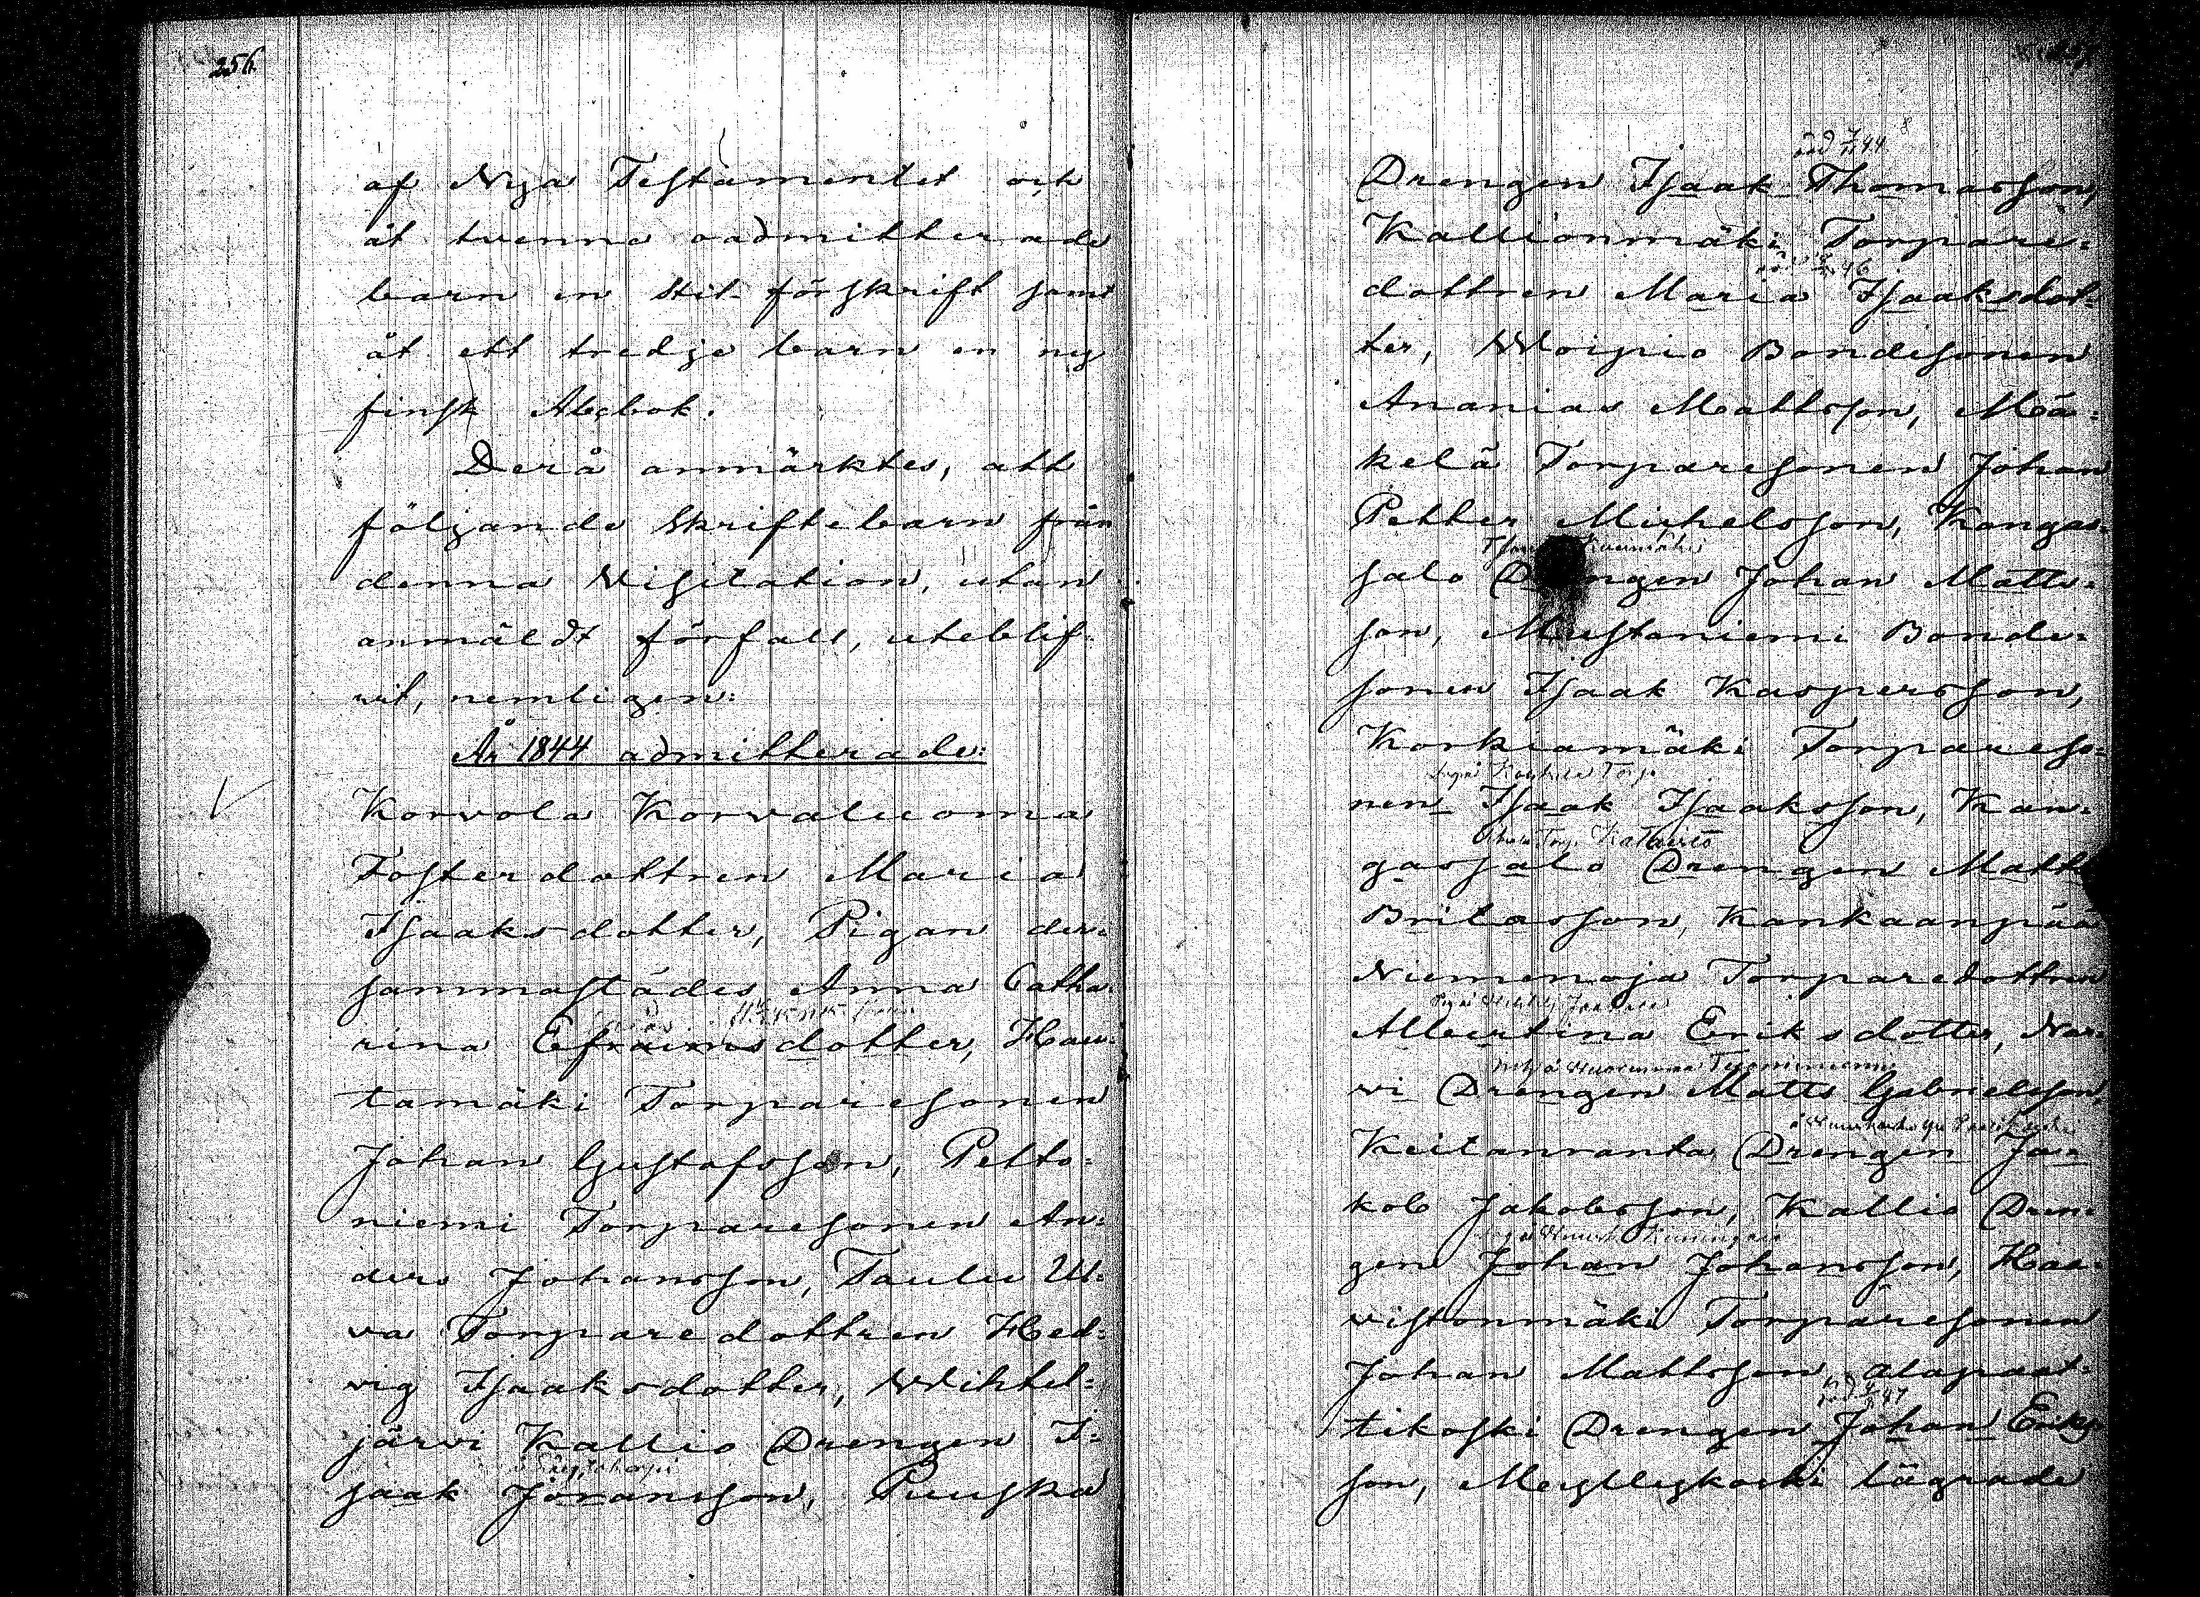 256.
af Nya Testamentet och
åt tvenne oadmitterade
barn en Stil-förskrift samt
åt ett tredje barn en ny
finsk Abcbok.
Derå anmärktes, att
följande Skriftebarn från
denna Visitation, utan
anmäldt förfall, uteblif-
vit, nemligen:
År 1844 admitterade:
Korvola Korvaluoma
Fosterdottren Maria
Isaaksdotter, Pigan der-
sammastädes Anna Catha-
rina Efraimsdotter, Hau-
tamäki Torparesonen
Johan Gustafsson, Pelto-
niemi Torparesonen An-
ders Johansson, Taulu Ul-
va Torparedottren Hed-
vig Isaaksdotter, Wihtel-
järvi Kallio Drengen I-
saak Joransson, Puuska
död 44
Drengen Isaak Thomasson,
Kallionmäki Torpare-
död 46
dottren Maria Isaaksdot-
ter, Woipio Bondesonen
Ananias Mattsson, Mä-
kelä Torparesonen Johan
Petter Michelsson, Kangas-
salo Drengen Johan Matts-
son, Mustaniemi Bonde-
sonen Isaak Kaspersson,
Korkiamäki Torpareso-
nen Isaak Isaaksson, Kan-
Torp. Kallioisto
gassalo Drengen Matts
Britasson, Kankaanpää
Niemenoja Torparedottren
Albertina Eriksdotter, Nar-
vi Drengen Matts Gabrielsson,
Keitanranta Drengen Ja-
kob Jakobsson, Kallio Dren-
gen Johan Johansson, Haa-
vistonmäki Torparesonen
Johan Mattsson, Alapaat-
död 47
tikoski Drengen Johan Eriks-
son, Myllykoski lägrade